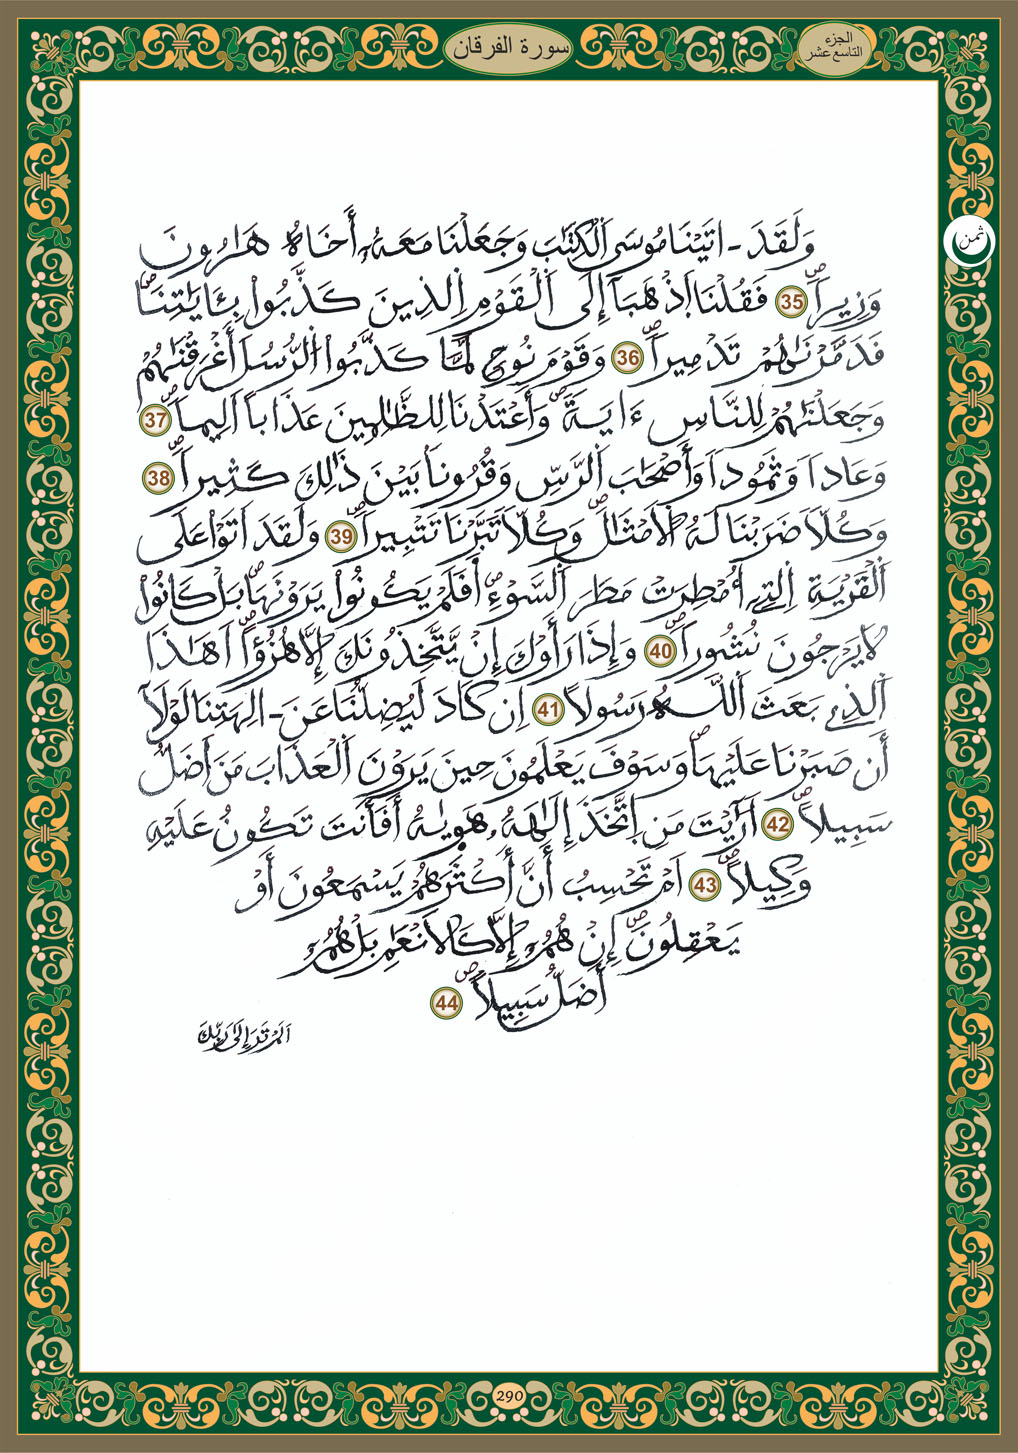 سورة الفرقان
الجزء
التاسع عشر
ثمن
وَلَقَدَ ـ اتَيْنَا مُوسَى اَلْكِتَٰبَ وَجَعَلْنَا مَعَهُۥ أَخَاهُ هَٰرُونَ
وَزِيراٗۖ 35 فَقُلْنَا اَذْهَبَا إِلَى اَلْقَوْمِ اِلذِينَ كَذَّبُواْ بِـَٔايَٰتِنَاۖ
فَدَمَّرْنَٰهُمْ تَدْمِيراٗۖ 36 وَقَوْمَ نُوحٖ لَّمَّا كَذَّبُواْ اُلرُّسُلَ أَغْرَقْنَٰهُمْ
وَجَعَلْنَٰهُمْ لِلنَّاسِ ءَايَةٗۖ وَأَعْتَدْنَا لِلظَّٰلِمِينَ عَذَاباً اَلِيماٗۖ 37
وَعَاداٗ وَثَمُوداٗ وَأَصْحَٰبَ اَلرَّسِّ وَقُرُوناَۢ بَيْنَ ذَٰلِكَ كَثِيراٗۖ 38
وَكُلّاٗ ضَرَبْنَا لَهُ اُلَامْثَٰلَۖ وَكُلّاٗ تَبَّرْنَا تَتْبِيراٗۖ 39 وَلَقَدَ اَتَوْاْ عَلَى
اَلْقَرْيَةِ اِلتِےٓ أُمْطِرَتْ مَطَرَ اَلسَّوْءِۖ أَفَلَمْ يَكُونُواْ يَرَوْنَهَاۖ بَلْ كَانُواْ
لَا يَرْجُونَ نُشُوراٗۖ 40 وَإِذَا رَأَوْكَ إِنْ يَّتَّخِذُونَكَ إِلَّا هُزُؤاًۖ اَهَٰذَا
اَلذِے بَعَثَ اَللَّهُ رَسُولاًۖ 41 اِن كَادَ لَيُضِلُّنَا عَنَ ـ الِهَتِنَا لَوْلَآ
أَن صَبَرْنَا عَلَيْهَاۖ وَسَوْفَ يَعْلَمُونَ حِينَ يَرَوْنَ اَلْعَذَابَ مَنَ اَضَلُّ
سَبِيلاًۖ 42 اَرَٰٓيْتَ مَنِ اِتَّخَذَ إِلَٰهَهُۥ هَوٜيٰهُ أَفَأَنتَ تَكُونُ عَلَيْهِ
وَكِيلاًۖ 43 اَمْ تَحْسِبُ أَنَّ أَكْثَرَهُمْ يَسْمَعُونَ أَوْ
يَعْقِلُونَۖ إِنْ هُمُۥٓ إِلَّا كَالَانْعَٰمِ بَلْ هُمُۥٓ
أَضَلُّ سَبِيلاًۖ 44
اَلَمْ تَرَ إِلَىٰ رَبِّكَ
290